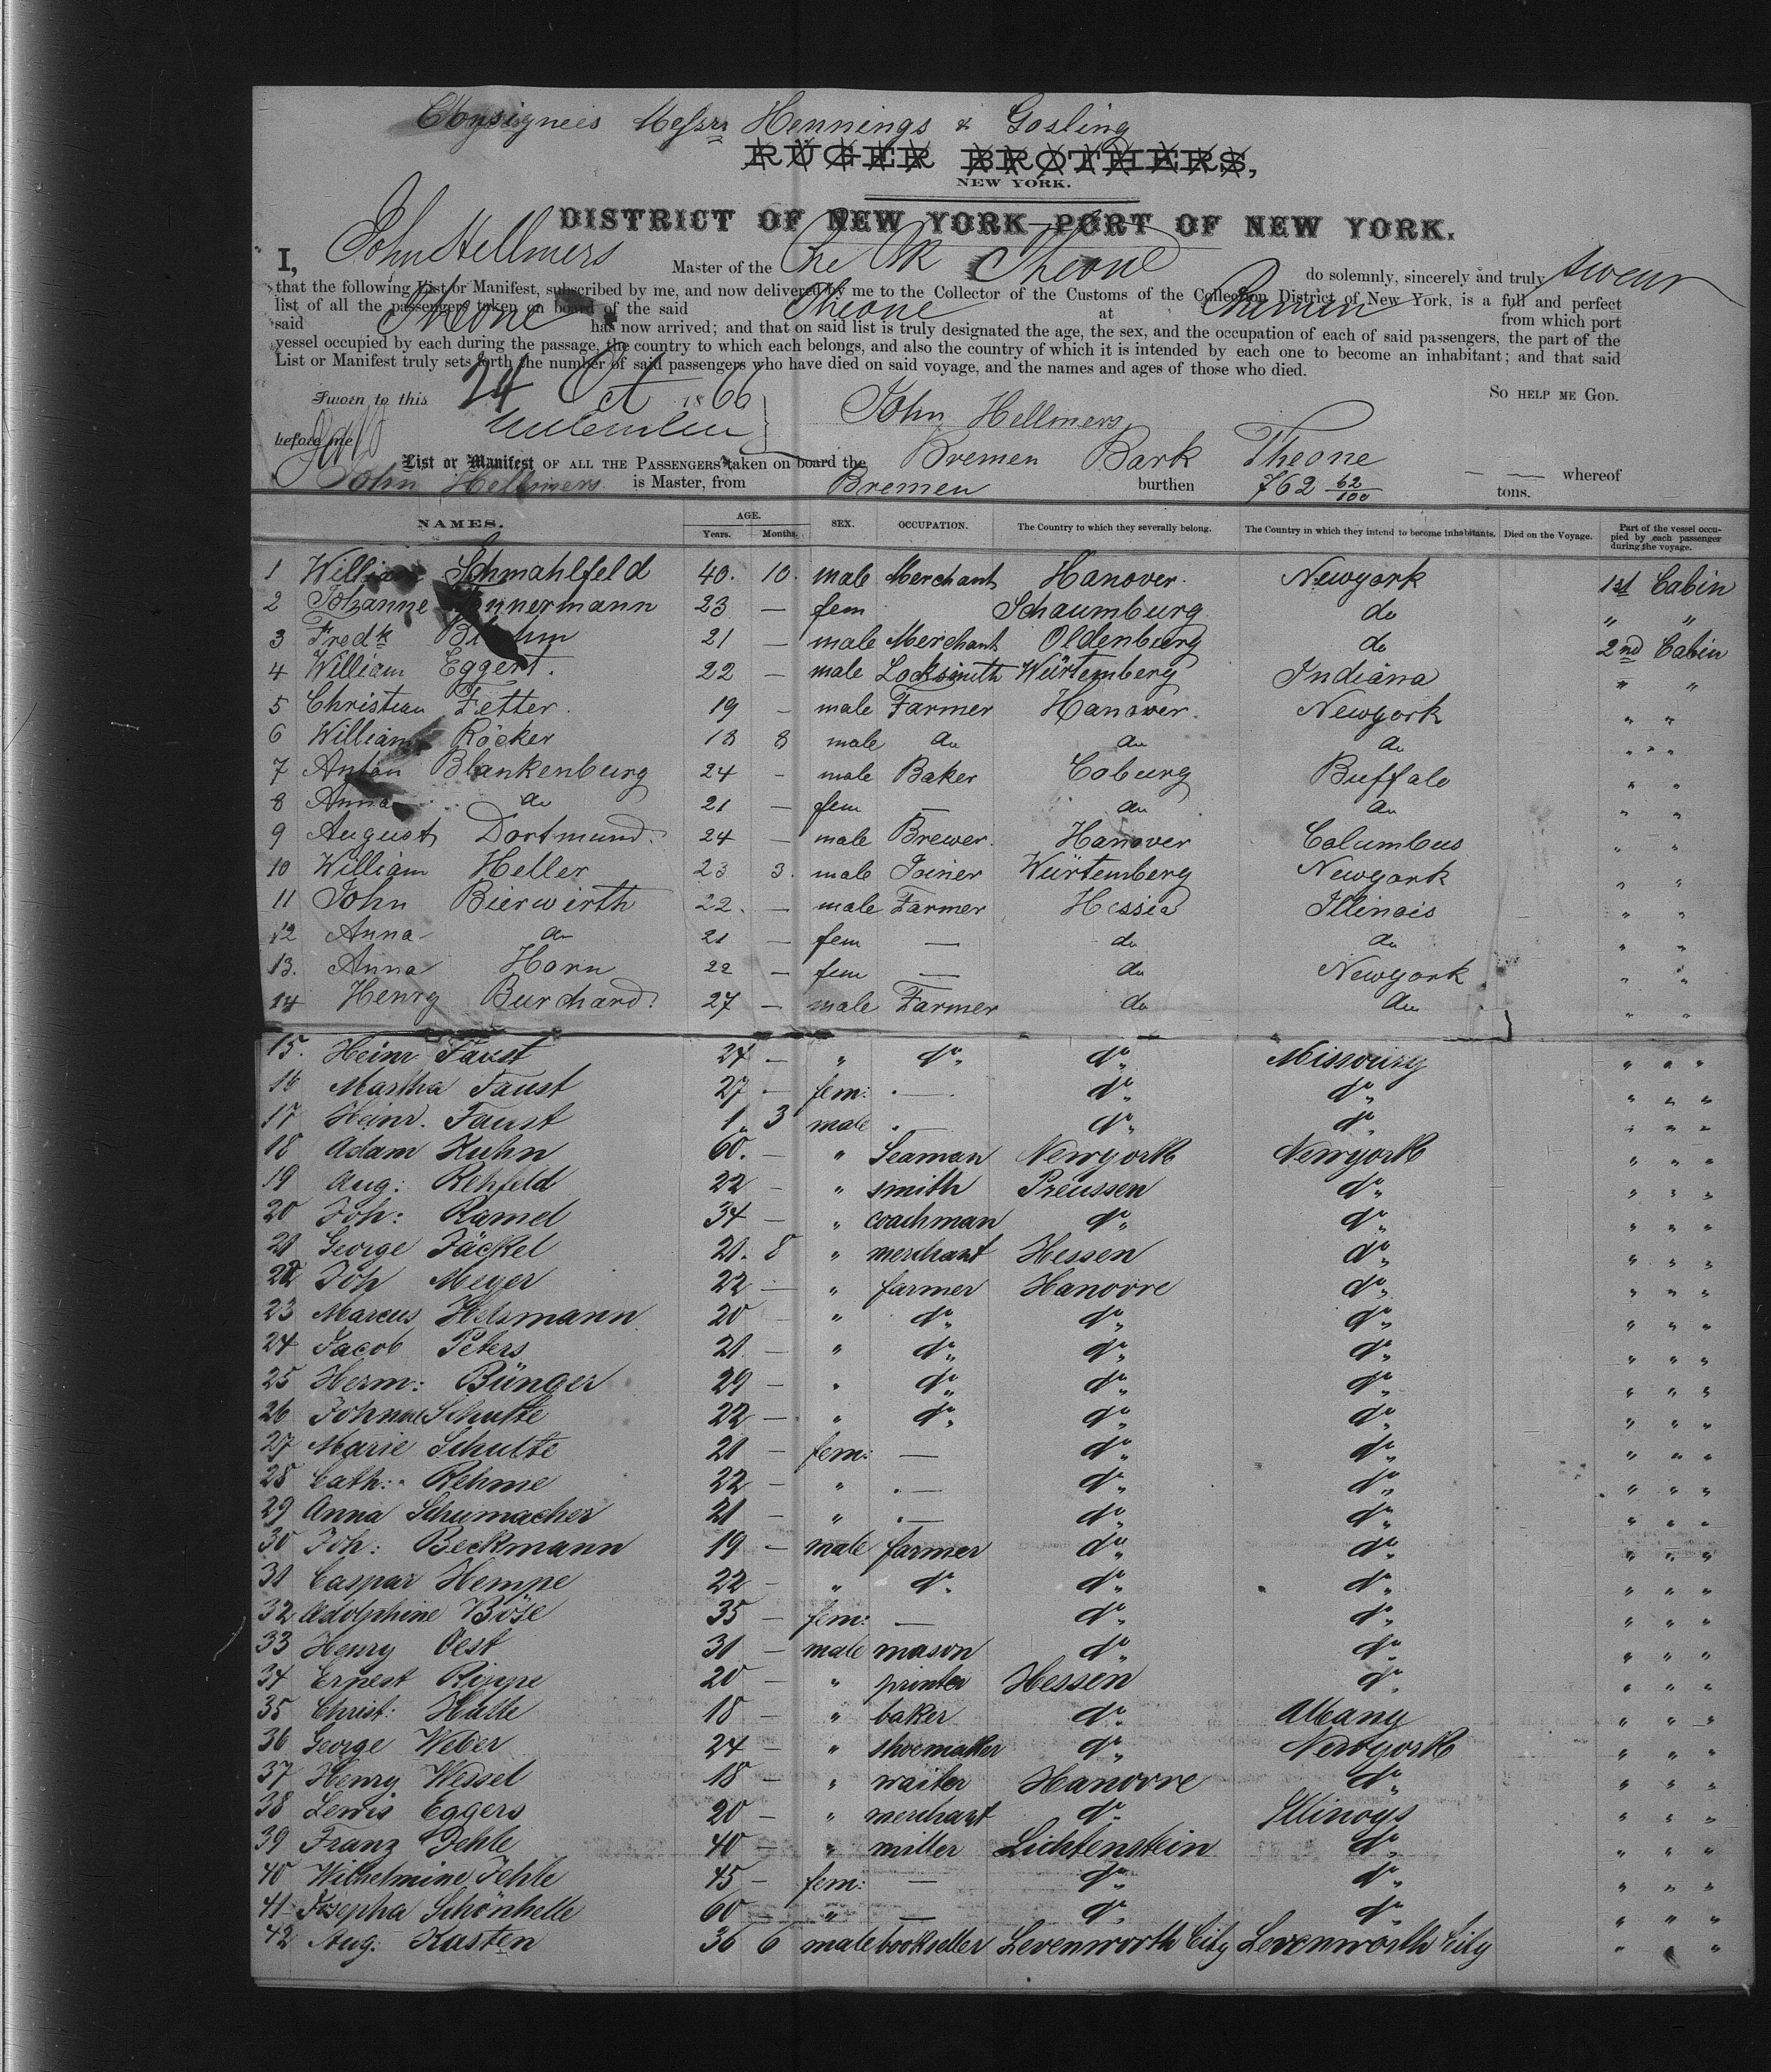 Consignees Messrs Hennings & Gosling
RÜGER BROTHERS,
NEW YORK.
DISTRICT OF NEW YORK—PORT OF NEW YORK.
I, John Hellmers Master of the Bre Bk Theone do solemnly, sincerely and truly swear
that the following List or Manifest, subscribed by me, and now delivered by me to the Collector of the Customs of the Collection District of New York, is a full and perfect
list of all the passengers taken on board of the said Theone at Bremen from which port
said Theone has now arrived; and that on said list is truly designated the age, the sex, and the occupation of each of said passengers, the part of the
vessel occupied by each during the passage, the country to which each belongs, and also the country of which it is intended by each one to become an inhabitant; and that said
List or Manifest truly sets forth the number of said passengers who have died on said voyage, and the names and ages of those who died.
SO HELP ME GOD.
Sworn to this 24 Oct 1866
before me
John Hellmers
List or Manifest OF ALL THE PASSENGERS taken on board the Bremen Bark Theone — — whereof
John Hellmers is Master, from Bremen burthen 762 62/100 tons.
NAMES. AGE. Years. Months. SEX. OCCUPATION. The Country to which they severally belong. The Country in which they intend to become inhabitants. Died on the Voyage. Part of the vessel occupied by each passenger during the voyage.
1 William Schmahlfeld 40. 10. male Merchant Hanover. Newyork 1st Cabin
2 Johanne 23 — fem Schaumburg do " "
3 Fredk 21 — male Merchant Oldenburg do 2nd Cabin
4 William Eggert. 22 — male Locksmith Würtemberg Indiana " "
5 Christian Fetter. 19 - male Farmer Hanover. Newyork " "
6 William Röcker 18 8 male do do do " " "
7 Anton Blankenburg 24 - male Baker Coburg Buffalo " "
8 Anna do 21 — fem — do do " "
9 August Dortmund. 24 — male Brewer. Hanover Columbus " "
10 William Heller 23 3. male Joiner Würtemberg Newyork " "
11 John Bierwirth 22. — male Farmer Hessia Illinois " "
12 Anna do 21 — fem — do do " "
13. Anna Horn 22 — fem — do Newyork " "
14 Henry Burchard. 27 — male Farmer do do " "
15. Heinr Faust 24 — " do do Missoury " " "
16 Martha Faust 27 — fem: — do do " " "
17 Heinr. Faust 1. 3 male — do do " " "
18 Adam Kuhn 60. — " Seaman Newyork Newyork " " "
19 Aug: Rehfeld 22 — " smith Preussen do " " "
20 Joh: Ramel 34 — " coachman do do " " "
21 George Jäckel 21. 8 " merchant Hessen do " " "
22 Joh Meyer 22 — " farmer Hanovre do " " "
23 Marcus Helsmann 20 - " do do do " " "
24 Jacob Peters 21 - " do do do " " "
25 Herm: Bünger 29 — " do do do " " "
26 Schulte 22 — " do do do " " "
27 Marie Schulte 21 — fem: — do do " " "
28 Cath: Rehme 22 — " — do do " " "
29 Anna Schumacher 21 — " — do do " " "
30 Joh: Beckmann 19 — male farmer do do " " "
31 Caspar Hempe 22 — " do do do " " "
32 Adolphine Böse 35 — fem: — do do " " "
33 Henry Oest 31 — male mason do do " " "
34 Ernest Rippe 20 — " printer Hessen do " " "
35 Christ: Halle 18 — " baker do Albany " " "
36 George Weber 24 — " shoemaker do Newyork " " "
37 Henry Wessel 18 — " waiter Hanovre do " " "
38 Lewis Eggers 20 — " merchant do Illinoys " " "
39 Franz Jehle 40 — " miller Lichtenstein do " " "
40 Wilhelmine Jehle 45 — fem: — do do " " "
41 Josepha Schönhelle 60 — " — do do " " "
42 Aug: Kasten 36 6 male bookseller Levenworth City Levenworth City " " "